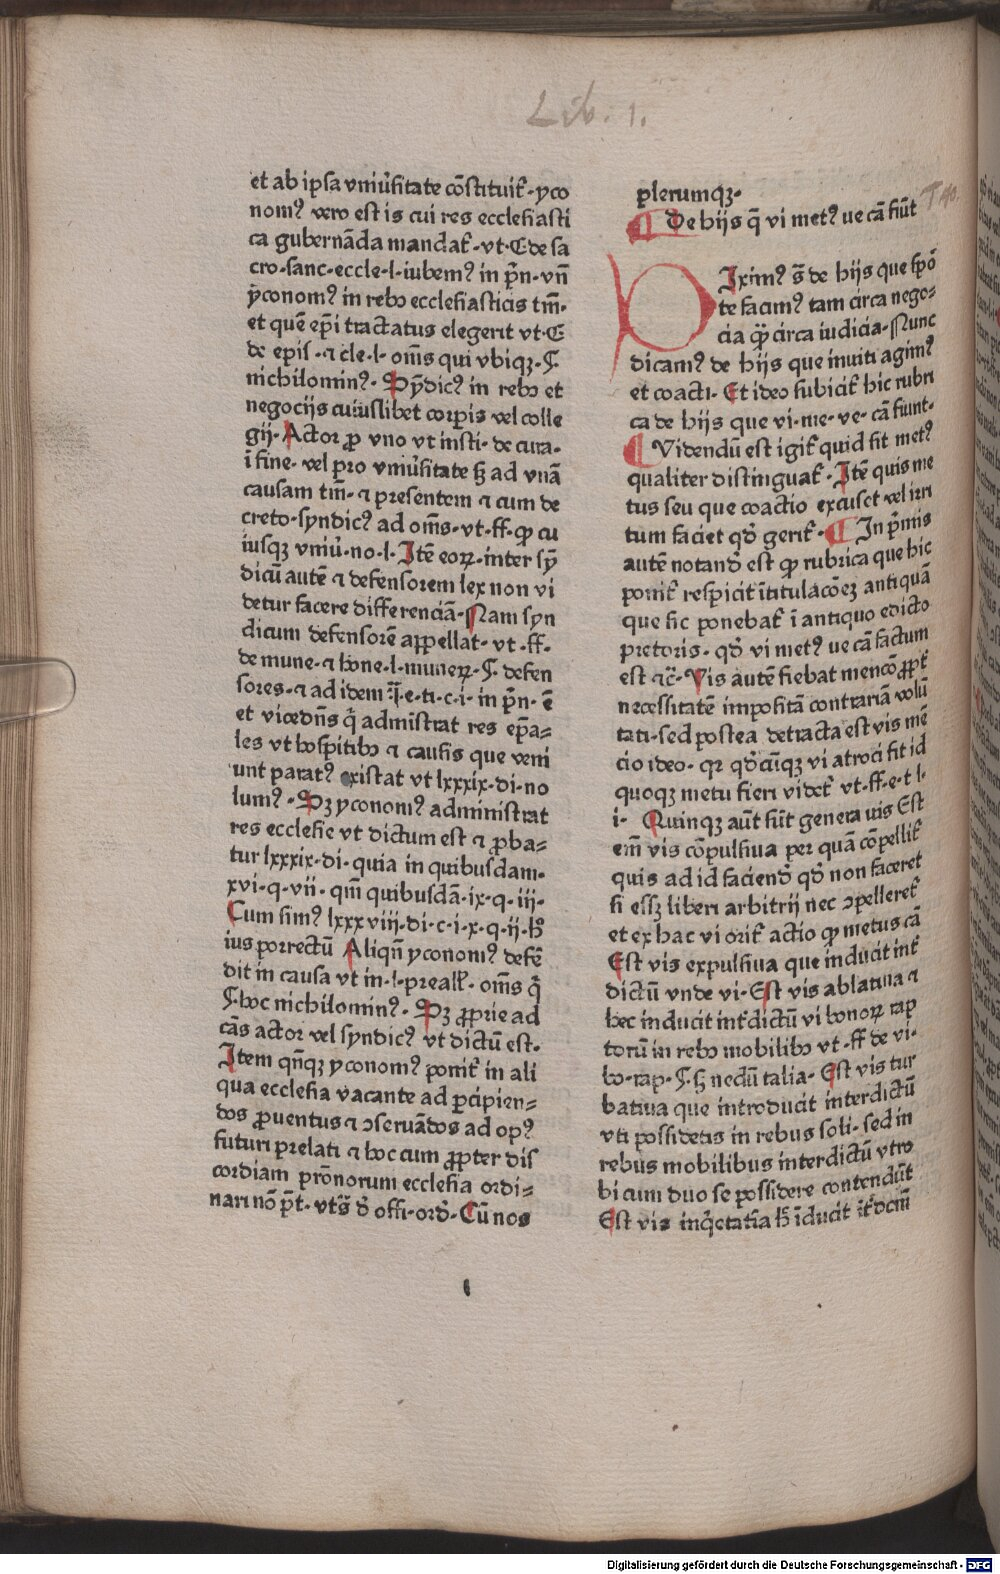 Lib. 1.
et ab ipsa vniũsitate cõstituit̃ · yco
nomꝰ vero est is cui res ecclesiasti
ca gubernãda mandat̃ · vt · C de sa
cro · sanc · eccle · l · iubemꝰ in p̃n · vñ
ỹconomꝰ in rebꝫ ecclesiasticis tm̃ ·
et quẽ ep̃i tractatus elegerit vt · C
de epis̃ · ⁊ cle · l · om̃s qui vbiqꝫ · §.
nichilominꝰ · Sỹdicꝰ in rebꝫ et
negocijs cuiuslibet corpis vel colle
gij · Actor ꝓ vno vt insti · de cura ·
ĩ fine · vel pro vniũsitate sꝫ ad vnã
causam tm̃ · ⁊ presentem ⁊ cum de
creto · syndicꝰ ad om̃s · vt · ff · ꝙ cu
iusqꝫ vniũ · no · l · Itẽ eoꝝ · inter sỹ
dicũ autẽ ⁊ defensorem lex non vi
detur facere differenciã · Nam syn
dicum defensorẽ appellat · vt · ff ·
de mune · ⁊ hone · l · muneꝝ · §. defen
sores · ⁊ ad idem · e · ti · c · i · in p̃n · ẽ
et vicedñs q̃ administrat res ep̃a=
les vt hospitibꝫ ⁊ causis que veni
unt paratꝰ existat vt lxxxix · di · no
lumꝰ · Sꝫ yconomꝰ administrat
res ecclesie vt dictum est ⁊ ꝓba=
tur lxxxix · di · quia in quibusdam ·
xvi · q · vii · qm̃ quibusdã · ix · q · iii ·
Cum simꝰ lxxxviii · di · c · i · x · q · ii · h̃
ius porrectũ Aliqñ yconomꝰ defẽ
dit in causa vt in · l · preall̃ · om̃s q̃
§. hoc nichilominꝰ · Sꝫ ꝓprie ad
cãs actor vel syndicꝰ vt dictũ est ·
Item qñqꝫ yconomꝰ ponit̃ in ali
qua ecclesia vacante ad ꝑcipien=
dos ꝓuentus ⁊ ↄseruãdos ad opꝰ
futuri prelati ⁊ hoc cum ꝓpter dis
cordiam prõnorum ecclesia ordi=
nari nõ p̃t · vt s̃ d̃ offi · ord̃ · Cũ nos
plerumqꝫ ·
De hijs q̃ vi metꝰ ue cã fiũt
Diximꝰ s̃ de hijs que spõ
te facimꝰ tam circa nego=
cia q̃ꝫ circa iudicia · Nunc
dicamꝰ de hijs que inuiti agimꝰ
et coacti · Et ideo subicit̃ hic rubri
ca de hijs que vi · me · ve · cã fiunt ·
Videndũ est igit̃ quid sit metꝰ
qualiter distinguat̃ · Itẽ quis me
tus seu que coactio excuset vel irri
tum faciet qd̃ gerit̃ · In p̃mis
autẽ notand̃ est ꝙ rubrica que hic
ponit̃ respicit ĩtitulacõeꝫ antiquã
que sic ponebat̃ ĩ antiquo edicto
pretoris · qd̃ vi metꝰ ue cã factum
est ⁊c̃ · Vis autẽ fiebat mencõ ꝓpt̃
necessitatẽ impositã contrariã volũ
tati · sed postea detracta est vis mẽ
cio ideo · qꝛ qd̃cũqꝫ vi atroci fit id
quoqꝫ metu fieri videt̃ vt · ff · e · t · l ·
i · Quinqꝫ aũt sũt genera uis Est
em̃ vis cõpulsiua per quã cõpellit̃
quis ad id faciend̃ qd̃ non faceret
si esset liberi arbitrij nec ↄpelleret̃
et ex hac vi orit̃ actio ꝙ metus cã
Est vis expulsiua que inducit int̃
dictũ vnde vi · Est vis ablatiua ⁊
hec inducit int̃dictũ vi bonoꝝ rap
torũ in rebꝫ mobilibꝫ vt · ff de vi ·
bo · rap · §. hꝫ nedũ talia · Est vis tur
batiua que introducit interdictũ
vti possidetis in rebus soli · sed in
rebus mobilibus interdictũ vtro
bi cum duo se possidere contendũt
Est vis inq̃etatĩa h̃ ĩducit ĩt̃dcm̃
Digitalisierung gefördert durch die Deutsche Forschungsgemeinschaft - DFG